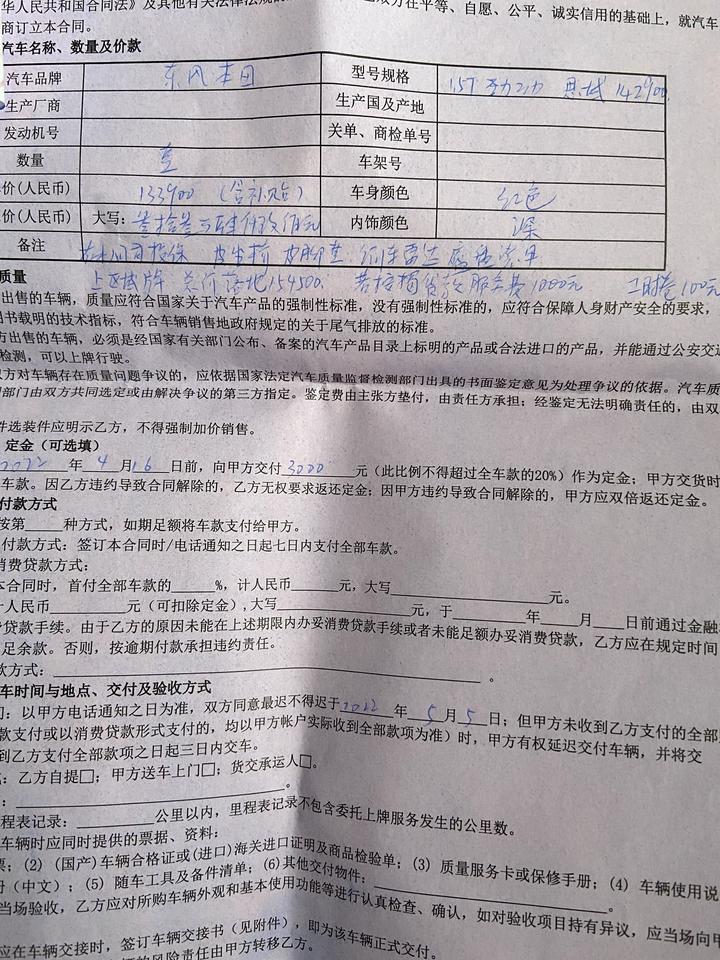 华人民共和国合同法》及其他有关法律法规的
双方在平等、自愿、公平、诚实信用的基础上，就汽车
商订立本合同。
汽车名称、数量及价款
汽车品牌 东风本田 型号规格 1.5T 劲动力 思域 142900
生产厂商 生产国及产地
发动机号 关单、商检单号
数量 壹 车架号
价(人民币) 133900 (含补贴) 车身颜色 红色
价(人民币) 大写: 内饰颜色 深
备注
上区域牌 总价落地154500. 服务费1000元 100元
质量
出售的车辆，质量应符合国家关于汽车产品的强制性标准，没有强制性标准的，应符合保障人身财产安全的要求，
书载明的技术指标，符合车辆销售地政府规定的关于尾气排放的标准。
方出售的车辆，必须是经国家有关部门公布、备案的汽车产品目录上标明的产品或合法进口的产品，并能通过公安交通
检测，可以上牌行驶。
双方对车辆存在质量问题争议的，应依据国家法定汽车质量监督检测部门出具的书面鉴定意见为处理争议的依据。汽车质
部门由双方共同选定或由解决争议的第三方指定。鉴定费由主张方垫付，由责任方承担；经鉴定无法明确责任的，由双
件选装件应明示乙方，不得强制加价销售。
定金（可选填）
2022 年 4 月 16 日前，向甲方交付 3000 元（此比例不得超过全车款的20%）作为定金；甲方交货时
车款。因乙方违约导致合同解除的，乙方无权要求返还定金；因甲方违约导致合同解除的，甲方应双倍返还定金。
付款方式
按第____种方式，如期足额将车款支付给甲方。
付款方式：签订本合同时/电话通知之日起七日内支付全部车款。
消费贷款方式：
本合同时，首付全部车款的______%，计人民币______元，大写____________________元。
人民币________元（可扣除定金），大写________________元，于________年____月____日前通过金融
贷款手续。由于乙方的原因未能在上述期限内办妥消费贷款手续或者未能足额办妥消费贷款，乙方应在规定时间
足余款。否则，按逾期付款承担违约责任。
款方式：________________________________________________。
车时间与地点、交付及验收方式
：以甲方电话通知之日为准，双方同意最迟不得迟于 2022 年 5 月 5 日；但甲方未收到乙方支付的全部
款支付或以消费贷款形式支付的，均以甲方帐户实际收到全部款项为准）时，甲方有权延迟交付车辆，并将交
到乙方支付全部款项之日起三日内交车。
：乙方自提□；甲方送车上门□；货交承运人□。
：______________________________。
程表记录：________公里以内，里程表记录不包含委托上牌服务发生的公里数。
车辆时应同时提供的票据、资料：
票；(2) (国产)车辆合格证或(进口)海关进口证明及商品检验单；(3) 质量服务卡或保修手册；(4) 车辆使用说
册（中文）；(5) 随车工具及备件清单；(6)其他交付物件：____________________________。
当场验收，乙方应对所购车辆外观和基本使用功能等进行认真检查、确认，如对验收项目持有异议，应当场向甲
应在车辆交接时，签订车辆交接书（见附件），即为该车辆正式交付。
的风险责任由甲方转移乙方。